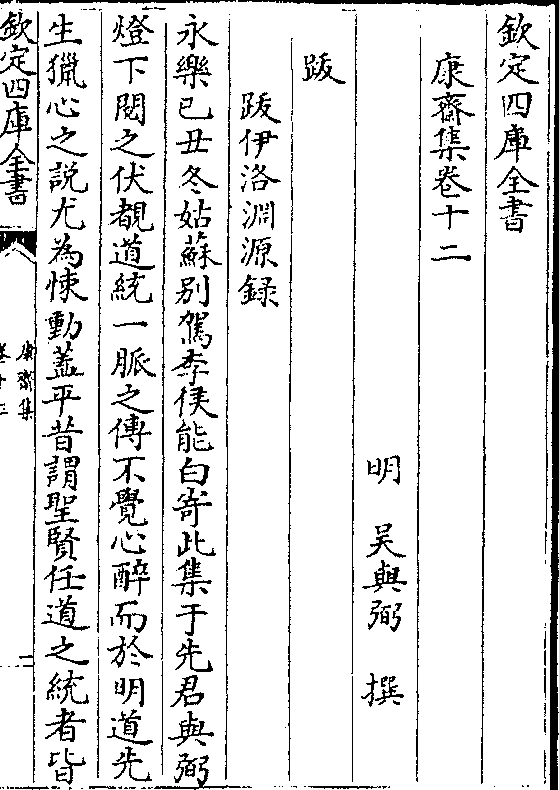 欽定四庫全書
康齋集卷十二
明 吴與弼 撰
跋
跋伊洛淵源録
永樂已丑冬姑蘇别駕李侯能白寄此集于先君與弼
燈下閱之伏覩道統一脈之傳不覺心醉而於明道先
生獵心之説尤為悚動葢平昔謂聖賢任道之統者皆
欽定四庫全書
康齋集
卷十二